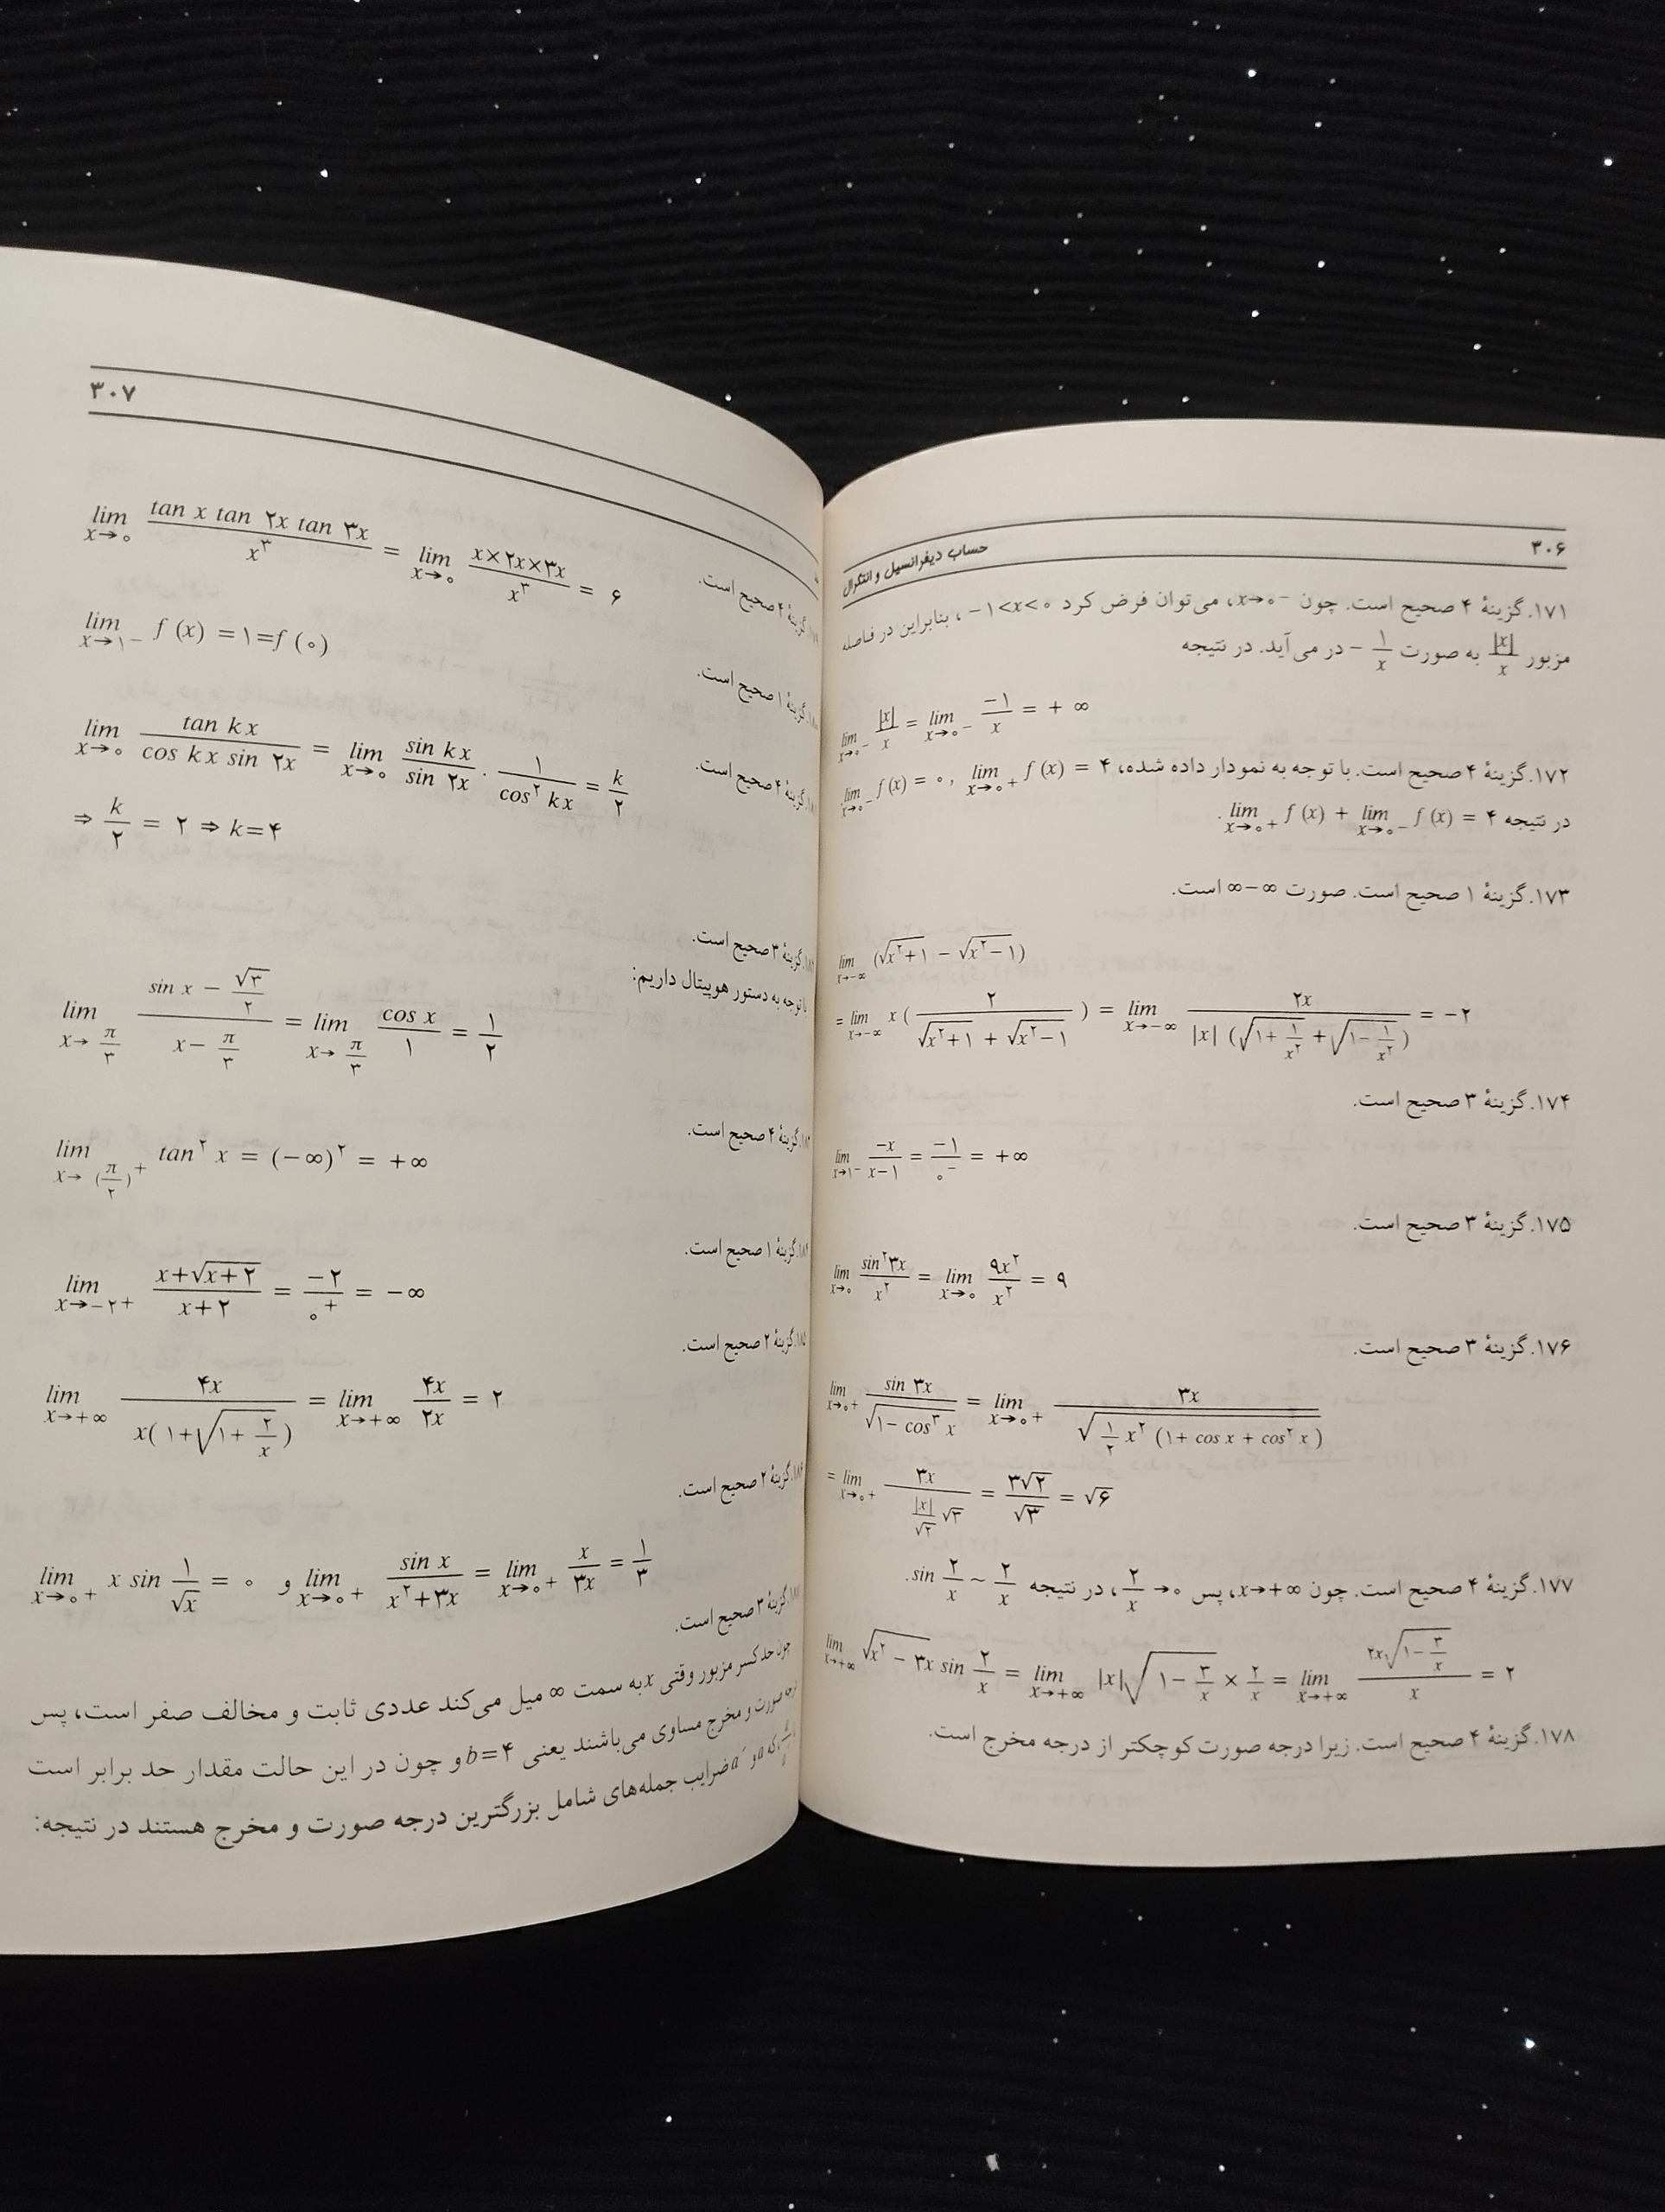 ۳۰۶
حساب دیفرانسیل و انتگرال
۱۷۱. گزینهٔ ۴ صحیح است. چون x→۰⁻، می‌توان فرض کرد ۰>x>۱-، بنابراین در فاصله
مزبور |x|/x به صورت ۱/x - در می‌آید. در نتیجه
lim x→۰⁻ |x|/x = lim x→۰⁻ -۱/x = + ∞
۱۷۲. گزینهٔ ۴ صحیح است. با توجه به نمودار داده شده، lim x→۰⁻ f (x) = ۰ , lim x→۰+ f (x) = ۴
در نتیجه lim x→۰+ f (x) + lim x→۰- f (x) = ۴.
۱۷۳. گزینهٔ ۱ صحیح است. صورت ∞-∞ است.
lim x→-∞ (√(x²+۱) - √(x²-۱))
= lim x→-∞ x ( ۲ / (√(x²+۱) + √(x²-۱)) ) = lim x→-∞ ۲x / (|x| (√(۱+ ۱/x²) + √(۱- ۱/x²))) = -۲
۱۷۴. گزینهٔ ۳ صحیح است.
lim x→۱⁻ -x/(x-۱) = -۱/۰⁻ = +∞
۱۷۵. گزینهٔ ۳ صحیح است.
lim x→۰ sin²۳x / x² = lim x→۰ ۹x²/x² = ۹
۱۷۶. گزینهٔ ۳ صحیح است.
lim x→۰+ sin ۳x / √(۱- cos³ x) = lim x→۰+ ۳x / √(۱/۲ x² (۱+ cos x + cos² x))
= lim x→۰+ ۳x / (|x|/√۲ √۳) = ۳√۲/√۳ = √۶
۱۷۷. گزینهٔ ۴ صحیح است. چون x→+∞، پس ۲/x →۰، در نتیجه sin ۲/x ~ ۲/x.
lim x→+∞ √(x² - ۳x) sin ۲/x = lim x→+∞ |x|√(۱- ۳/x) × ۲/x = lim x→+∞ ۲x√(۱- ۳/x) / x = ۲
۱۷۸. گزینهٔ ۴ صحیح است. زیرا درجه صورت کوچکتر از درجه مخرج است.
۳۰۷
گزینهٔ ۴ صحیح است.
lim x→۰ tan x tan ۲x tan ۳x / x³ = lim x→۰ x×۲x×۳x / x³ = ۶
گزینهٔ ۱ صحیح است.
lim x→۱- f (x) =۱=f (۰)
گزینهٔ ۴ صحیح است.
lim x→۰ tan kx / (cos kx sin ۲x) = lim x→۰ sin kx / sin ۲x · ۱/cos² kx = k/۲
⇒ k/۲ = ۲ ⇒ k=۴
گزینهٔ ۳ صحیح است.
با توجه به دستور هوپیتال داریم:
lim x→π/۳ (sin x - √۳/۲) / (x- π/۳) = lim x→π/۳ cos x / ۱ = ۱/۲
گزینهٔ ۴ صحیح است.
lim x→(π/۲)+ tan² x = (-∞)² = +∞
گزینهٔ ۱ صحیح است.
lim x→-۲+ (x+√(x+۲)) / (x+۲) = -۲/۰+ = -∞
گزینهٔ ۲ صحیح است.
lim x→+∞ ۴x / (x( ۱+√(۱+ ۲/x))) = lim x→+∞ ۴x/۲x = ۲
گزینهٔ ۲ صحیح است.
lim x→۰+ x sin ۱/√x = ۰ و lim x→۰+ sin x / (x²+۳x) = lim x→۰+ x/۳x = ۱/۳
گزینهٔ ۳ صحیح است.
چون حد کسر مزبور وقتی x به سمت ∞ میل می‌کند عددی ثابت و مخالف صفر است، پس
درجه صورت و مخرج مساوی می‌باشند یعنی b=۴ و چون در این حالت مقدار حد برابر است
که a و a′ ضرایب جمله‌های شامل بزرگترین درجه صورت و مخرج هستند در نتیجه: